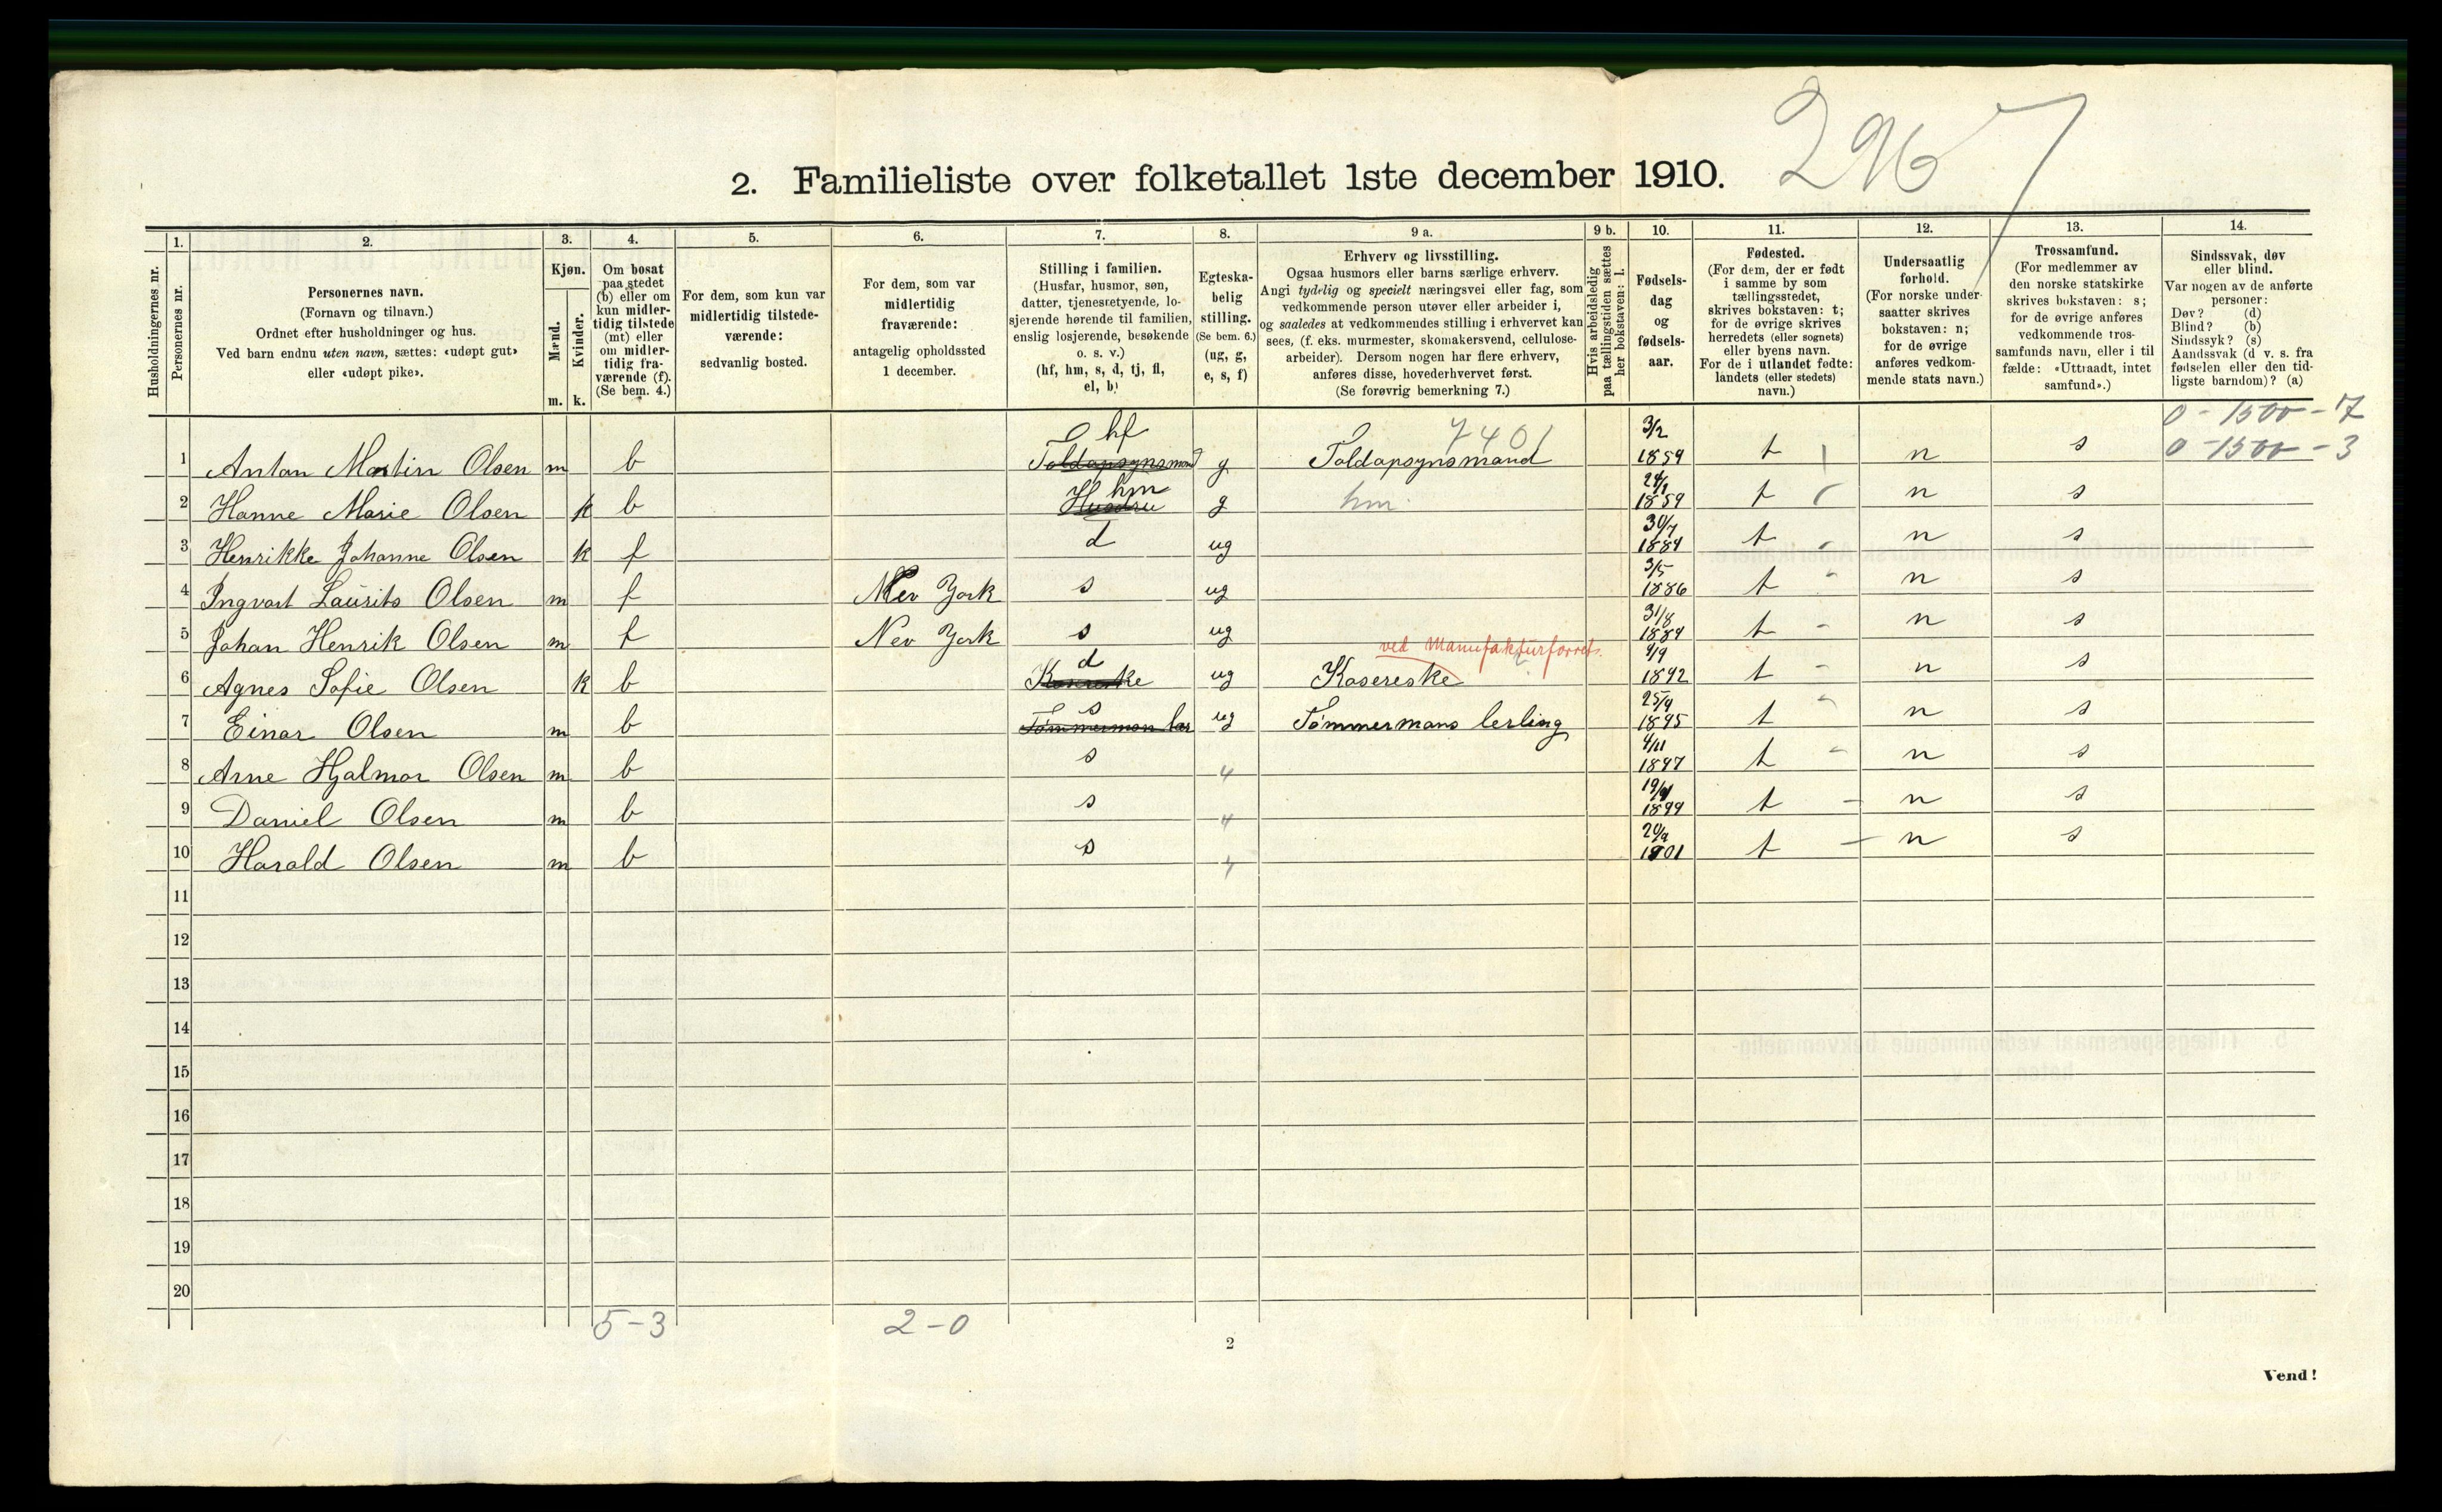 2967
2. Familieliste over folketallet 1ste december 1910.
Husholdningernes nr.
1. Personernes nr.
2. Personernes navn.
(Fornavn og tilnavn.)
Ordnet efter husholdninger og hus.
Ved barn endnu uten navn, sættes: «udøpt gut»
eller «udøpt pike».
3. Kjøn.
Mænd. m.
Kvinder. k.
4. Om bosat
paa stedet
(b) eller om
kun midler-
tidig tilstede
(mt) eller
om midler-
tidig fra-
værende (f).
(Se bem. 4.)
5. For dem, som kun var
midlertidig tilstede-
værende:
sedvanlig bosted.
6. For dem, som var
midlertidig
fraværende:
antagelig opholdssted
1 december.
7. Stilling i familien.
(Husfar, husmor, søn,
datter, tjenestetyende, lo-
sjerende hørende til familien,
enslig losjerende, besøkende
o. s. v.)
(hf, hm, s, d, tj, fl,
el, b)
8. Egteska-
belig
stilling.
(Se bem. 6.)
(ug, g,
e, s, f)
9 a. Erhverv og livsstilling.
Ogsaa husmors eller barns særlige erhverv.
Angi tydelig og specielt næringsvei eller fag, som
vedkommende person utøver eller arbeider i,
og saaledes at vedkommendes stilling i erhvervet kan
sees, (f. eks. murmester, skomakersvend, cellulose-
arbeider). Dersom nogen har flere erhverv,
anføres disse, hovederhvervet først.
(Se forøvrig bemerkning 7.)
9 b. Hvis arbeidsledig
paa tællingstiden sættes
her bokstaven: l.
10. Fødsels-
dag
og
fødsels-
aar.
11. Fødested.
(For dem, der er født
i samme by som
tællingsstedet,
skrives bokstaven: t;
for de øvrige skrives
herredets (eller sognets)
eller byens navn.
For de i utlandet fødte:
landets (eller stedets)
navn.)
12. Undersaatlig
forhold.
(For norske under-
saatter skrives
bokstaven: n;
for de øvrige
anføres vedkom-
mende stats navn.)
13. Trossamfund.
(For medlemmer av
den norske statskirke
skrives bokstaven: s;
for de øvrige anføres
vedkommende tros-
samfunds navn, eller i til
fælde: «Uttraadt, intet
samfund».)
14. Sindssvak, døv
eller blind.
Var nogen av de anførte
personer:
Døv? (d)
Blind? (b)
Sindssyk? (s)
Aandssvak (d v. s. fra
fødselen eller den tid-
ligste barndom)? (a)
0 - 1500 - 7
0 - 1500 - 3
1 Anton Martin Olsen m b hf Toldopsynsmand g 7401 Toldopsynsmand 3/2 1859 t n s
2 Hanne Marie Olsen k b hm Husfru g hm 24/1 1859 t n s
3 Henrikke Johanne Olsen k f d ug 30/7 1884 t n s
4 Ingvart Laurits Olsen m f Nev York s ug 3/5 1886 t n s
5 Johan Henrik Olsen m f Nev York s ug 31/8 1889 t n s
6 Agnes Sofie Olsen k b d ug Kasereske ved Manufakturforret. 9/9 1892 t n s
7 Einar Olsen m b s Tømmerman ug Tømmermans lerling 25/9 1895 t n s
8 Arne Hjalmar Olsen m b s 4 4/11 1897 t n s
9 Daniel Olsen m b s 4 1899 t n s
10 Harald Olsen m b s 4 20/9 1901 t n s
11
12
13
14
15
16
17
18
19
20
5-3 2-0
2
Vend!